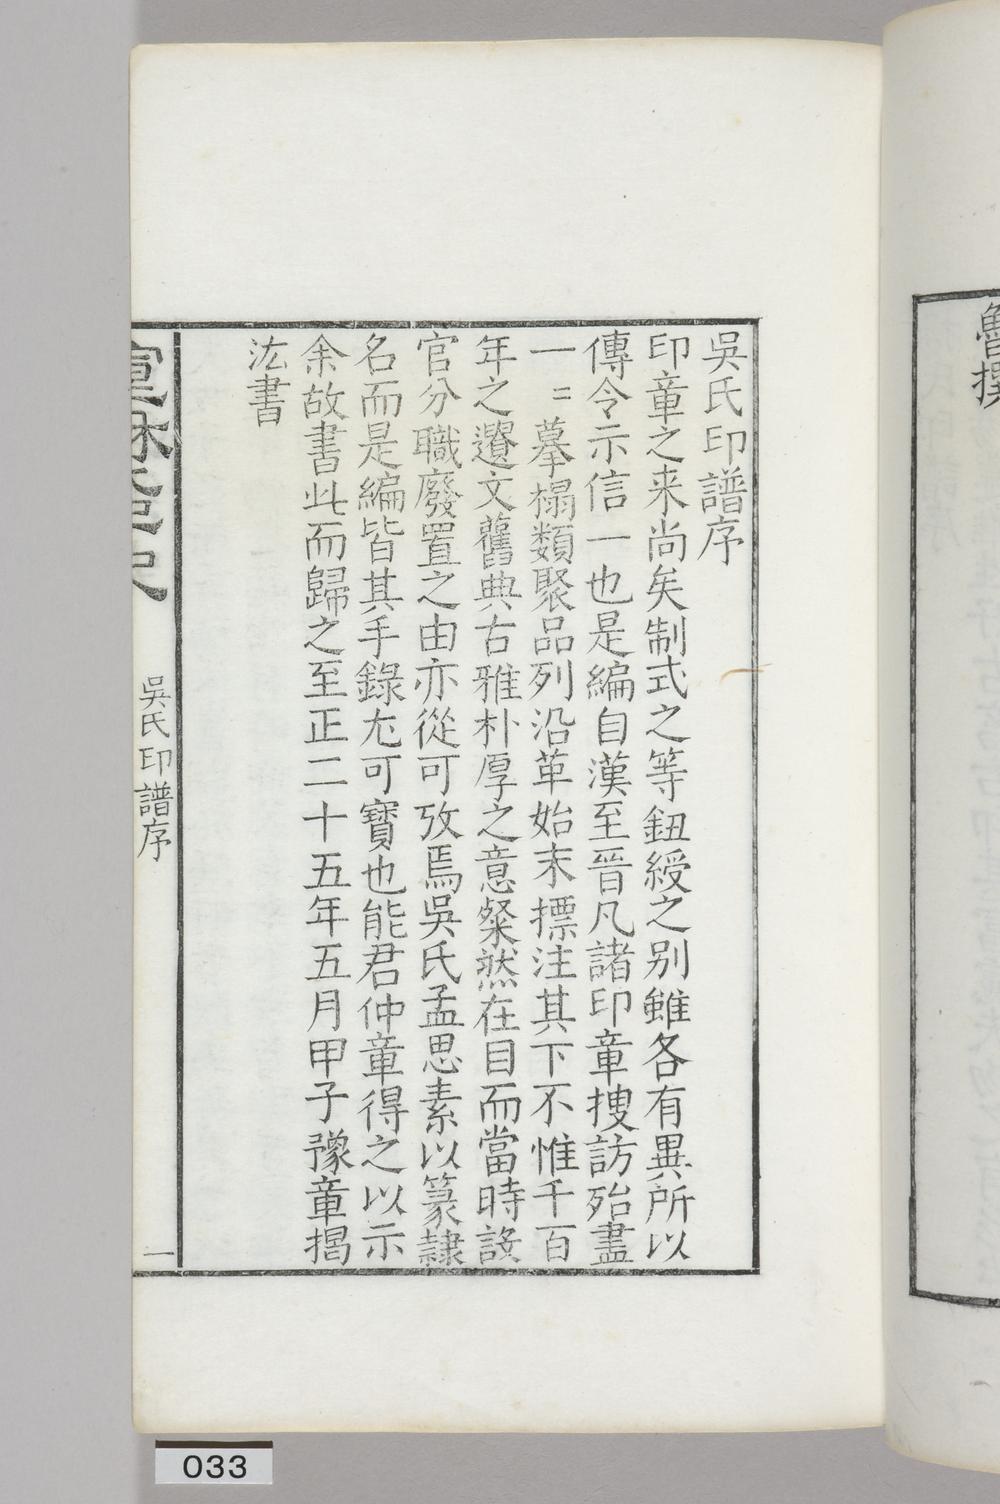 吳氏印譜序
印章之来尚矣制式之等鈕綬之别雖各有異所以
傳令示信一也是編自漢至晉凡諸印章搜訪殆盡
一〻摹榻類聚品列沿革始末摽注其下不惟千百
年之遺文舊典古雅朴厚之意粲然在目而當時設
官分職廢置之由亦從可攷焉吳氏孟思素以篆隷
名而是編皆其手錄尤可寶也能君仲章得之以示
余故書此而歸之至正二十五年五月甲子豫章揭
汯書
吳氏印譜序
一
撰
033